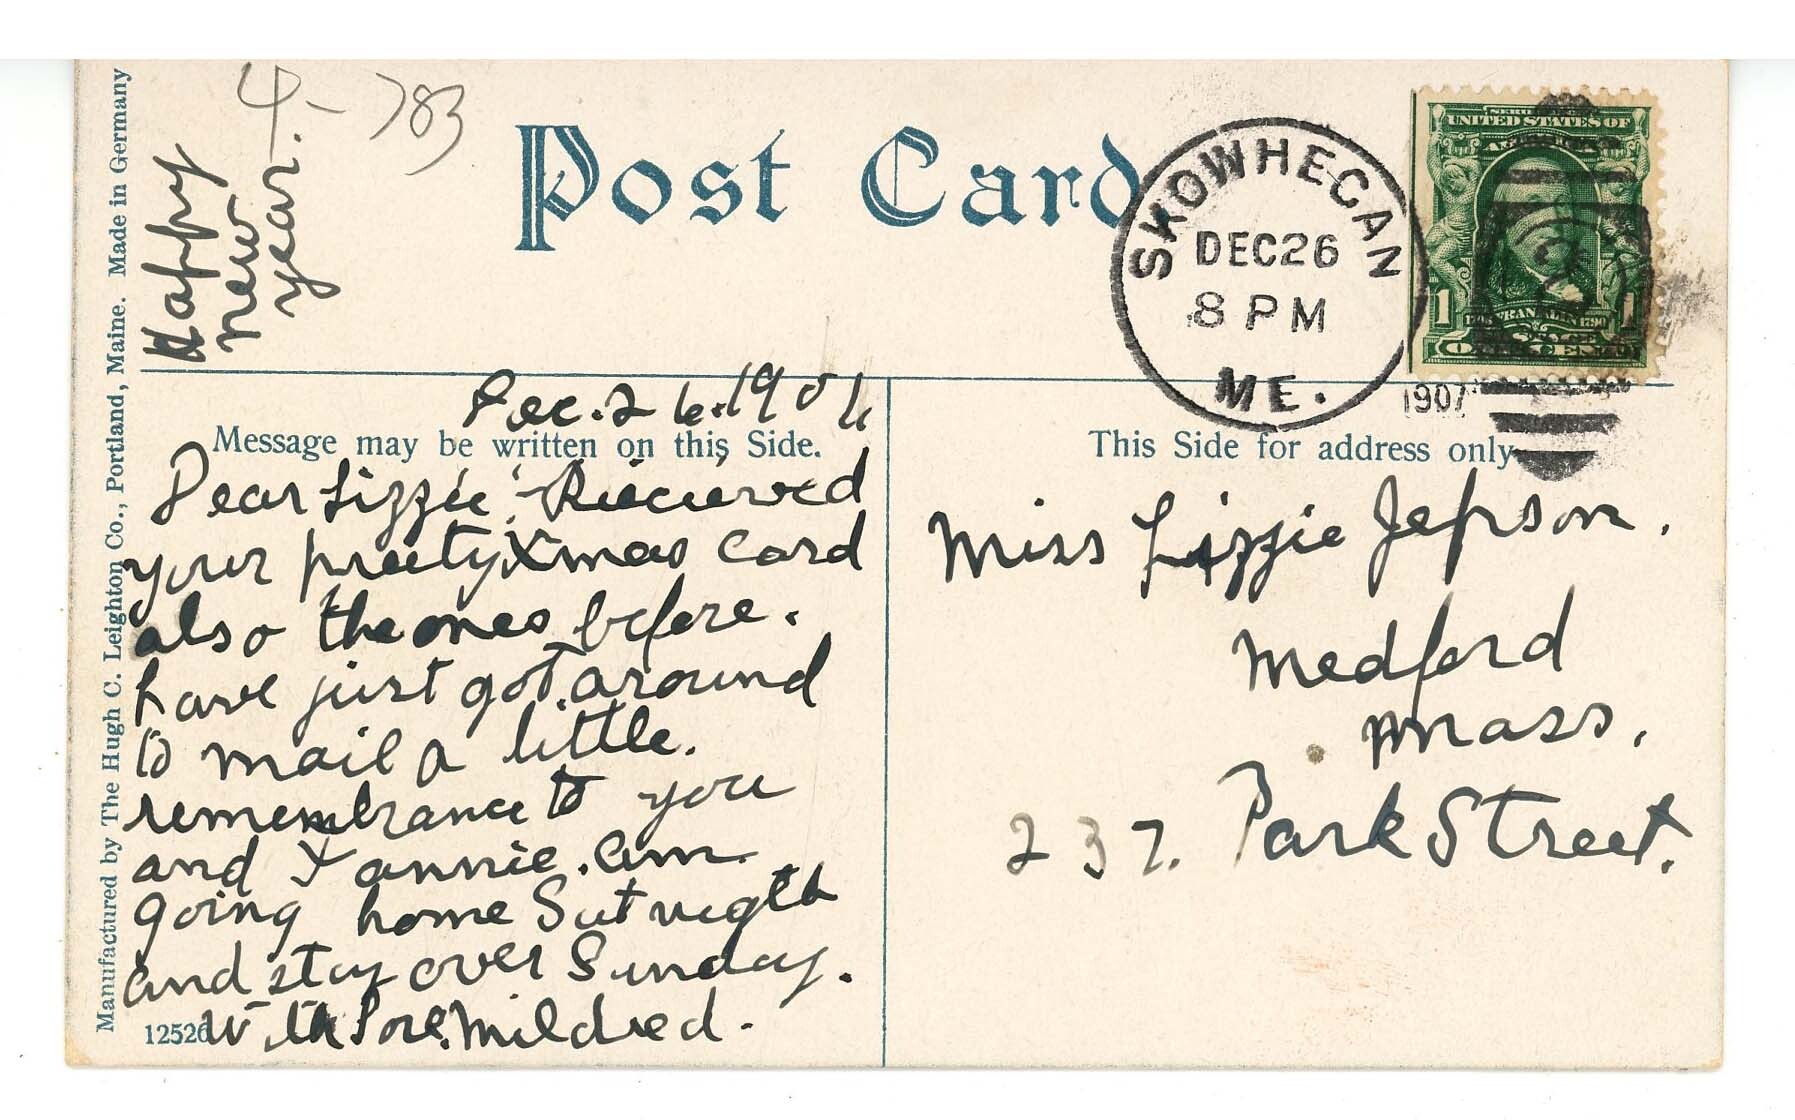 4.- 783
Happy
New
year.
Post Card
SKOWHEGAN
DEC 26
8 PM
ME.
1907
UNITED STATES OF
1 1
Dec. 26. 190
Message may be written on this Side.
Dear Lizzie:- Riecieved
your preety Xmas card
also the ones before.
have just got around
to mail a little.
remembrance to you
and Fannie. am
going home Sat nigth
and stay over Sunday.
With Love. Mildred.
12526
Manufactured by The Hugh C. Leighton Co., Portland, Maine. Made in Germany
This Side for address only
Miss Lizzie Jepson.
Medford
Mass.
237. Park Street.